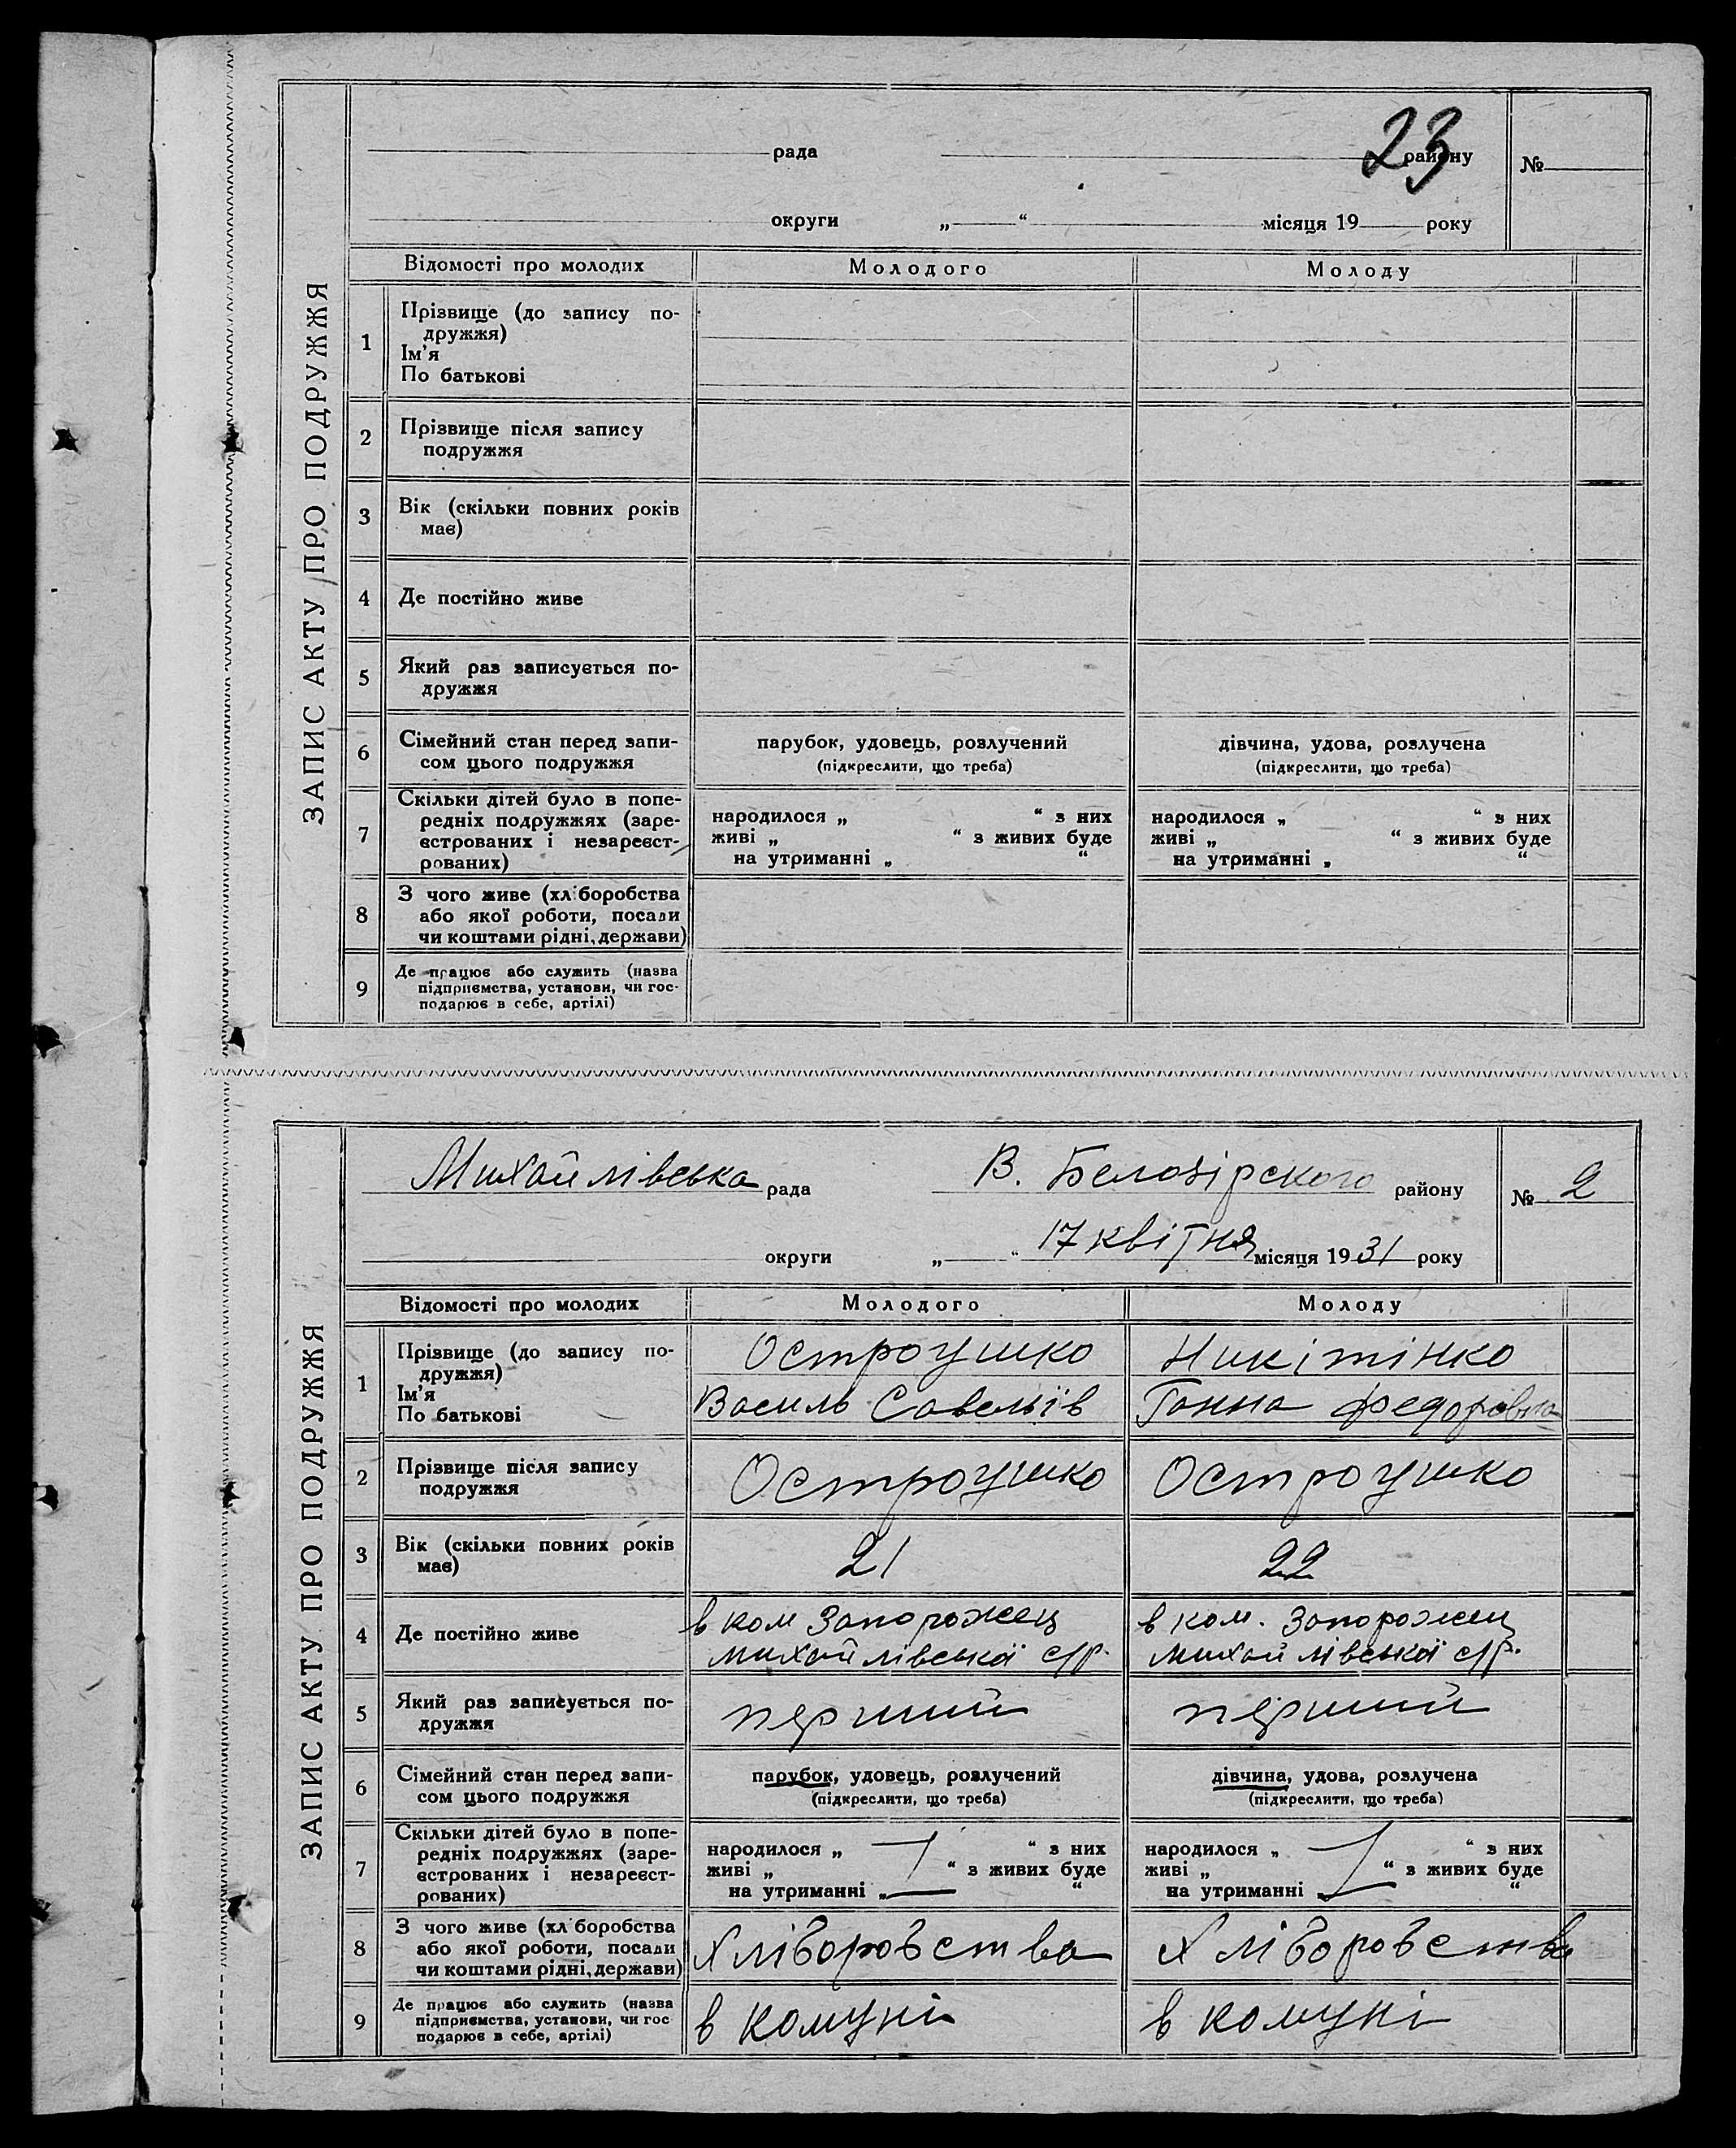 23
рада району №
округи „ “ місяця 19 року
ЗАПИС АКТУ ПРО ПОДРУЖЖЯ
Відомості про молодих Молодого Молоду
1 Прізвище (до запису по-
дружжя)
Ім'я
По батькові
2 Прізвище після запису
подружжя
3 Вік (скільки повних років
має)
4 Де постійно живе
5 Який раз записується по-
дружжя
6 Сімейний стан перед запи-
сом цього подружжя
парубок, удовець, розлучений
(підкреслити, що треба)
дівчина, удова, розлучена
(підкреслити, що треба)
7 Скільки дітей було в попе-
редніх подружжях (заре-
єстрованих і незареєст-
рованих)
народилося „ “ з них
живі „ “ з живих буде
на утриманні „ “
народилося „ “ з них
живі „ “ з живих буде
на утриманні „ “
8 З чого живе (хліборобства
або якої роботи, посади
чи коштами рідні, держави)
9 Де працює або служить (назва
підприємства, установи, чи гос-
подарює в себе, артілі)
Михайлівська рада В. Белозірского району № 2
округи „ “ 17 квітня місяця 1931 року
ЗАПИС АКТУ ПРО ПОДРУЖЖЯ
Відомості про молодих Молодого Молоду
1 Прізвище (до запису по-
дружжя)
Ім'я
По батькові
Остроушко
Василь Савельїв
Никітінко
Ганна Федоровна
2 Прізвище після запису
подружжя
Остроушко
Остроушко
3 Вік (скільки повних років
має)
21
22
4 Де постійно живе
в ком Запорожец
михайлівської с/р.
в ком. Запорожец
михайлівської с/р.
5 Який раз записується по-
дружжя
перший
перший
6 Сімейний стан перед запи-
сом цього подружжя
парубок, удовець, розлучений
(підкреслити, що треба)
дівчина, удова, розлучена
(підкреслити, що треба)
7 Скільки дітей було в попе-
редніх подружжях (заре-
єстрованих і незареєст-
рованих)
народилося „ “ з них
живі „ “ з живих буде
на утриманні „ “
народилося „ “ з них
живі „ “ з живих буде
на утриманні „ “
8 З чого живе (хліборобства
або якої роботи, посади
чи коштами рідні, держави)
Хліборобства
Хліборобства
9 Де працює або служить (назва
підприємства, установи, чи гос
подарює в себе, артілі)
в комуні
в комуні